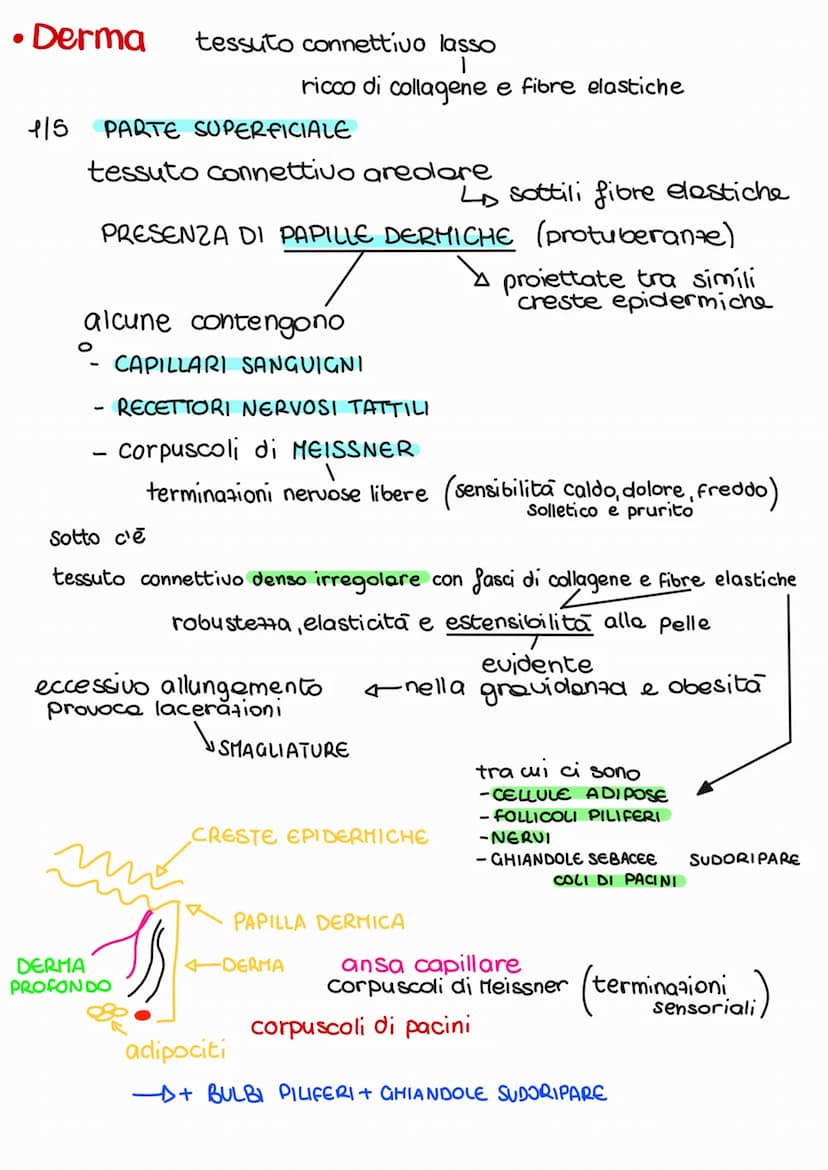 • Derma tessuto connettivo lasso
ricco di collagene e fibre elastiche
1/5 PARTE SUPERFICIALE
tessuto connettivo areolare
↳ sottili fibre elastiche
PRESENZA DI PAPILLE DERMICHE (protuberanze)
proiettate tra simili
creste epidermiche
alcune contengono
o
- CAPILLARI SANGUIGNI
- RECETTORI NERVOSI TATTILI
- corpuscoli di MEISSNER
terminazioni nervose libere (sensibilità caldo, dolore, freddo)
solletico e prurito
sotto c'è
tessuto connettivo denso irregolare con fasci di collagene e fibre elastiche
robustezza, elasticità e estensibilità alla pelle
evidente
eccessivo allungamento ← nella gravidanza e obesità
provoca lacerazioni
SMAGLIATURE
tra cui ci sono
- CELLULE ADIPOSE
- FOLLICOLI PILIFERI
- NERVI
- GHIANDOLE SEBACEE SUDORIPARE
COLI DI PACINI
CRESTE EPIDERMICHE
PAPILLA DERMICA
DERMA
DERMA
PROFONDO
ansa capillare
corpuscoli di Meissner (terminazioni
sensoriali)
corpuscoli di pacini
adipociti
→ + BULBI PILIFERI + GHIANDOLE SUDORIPARE